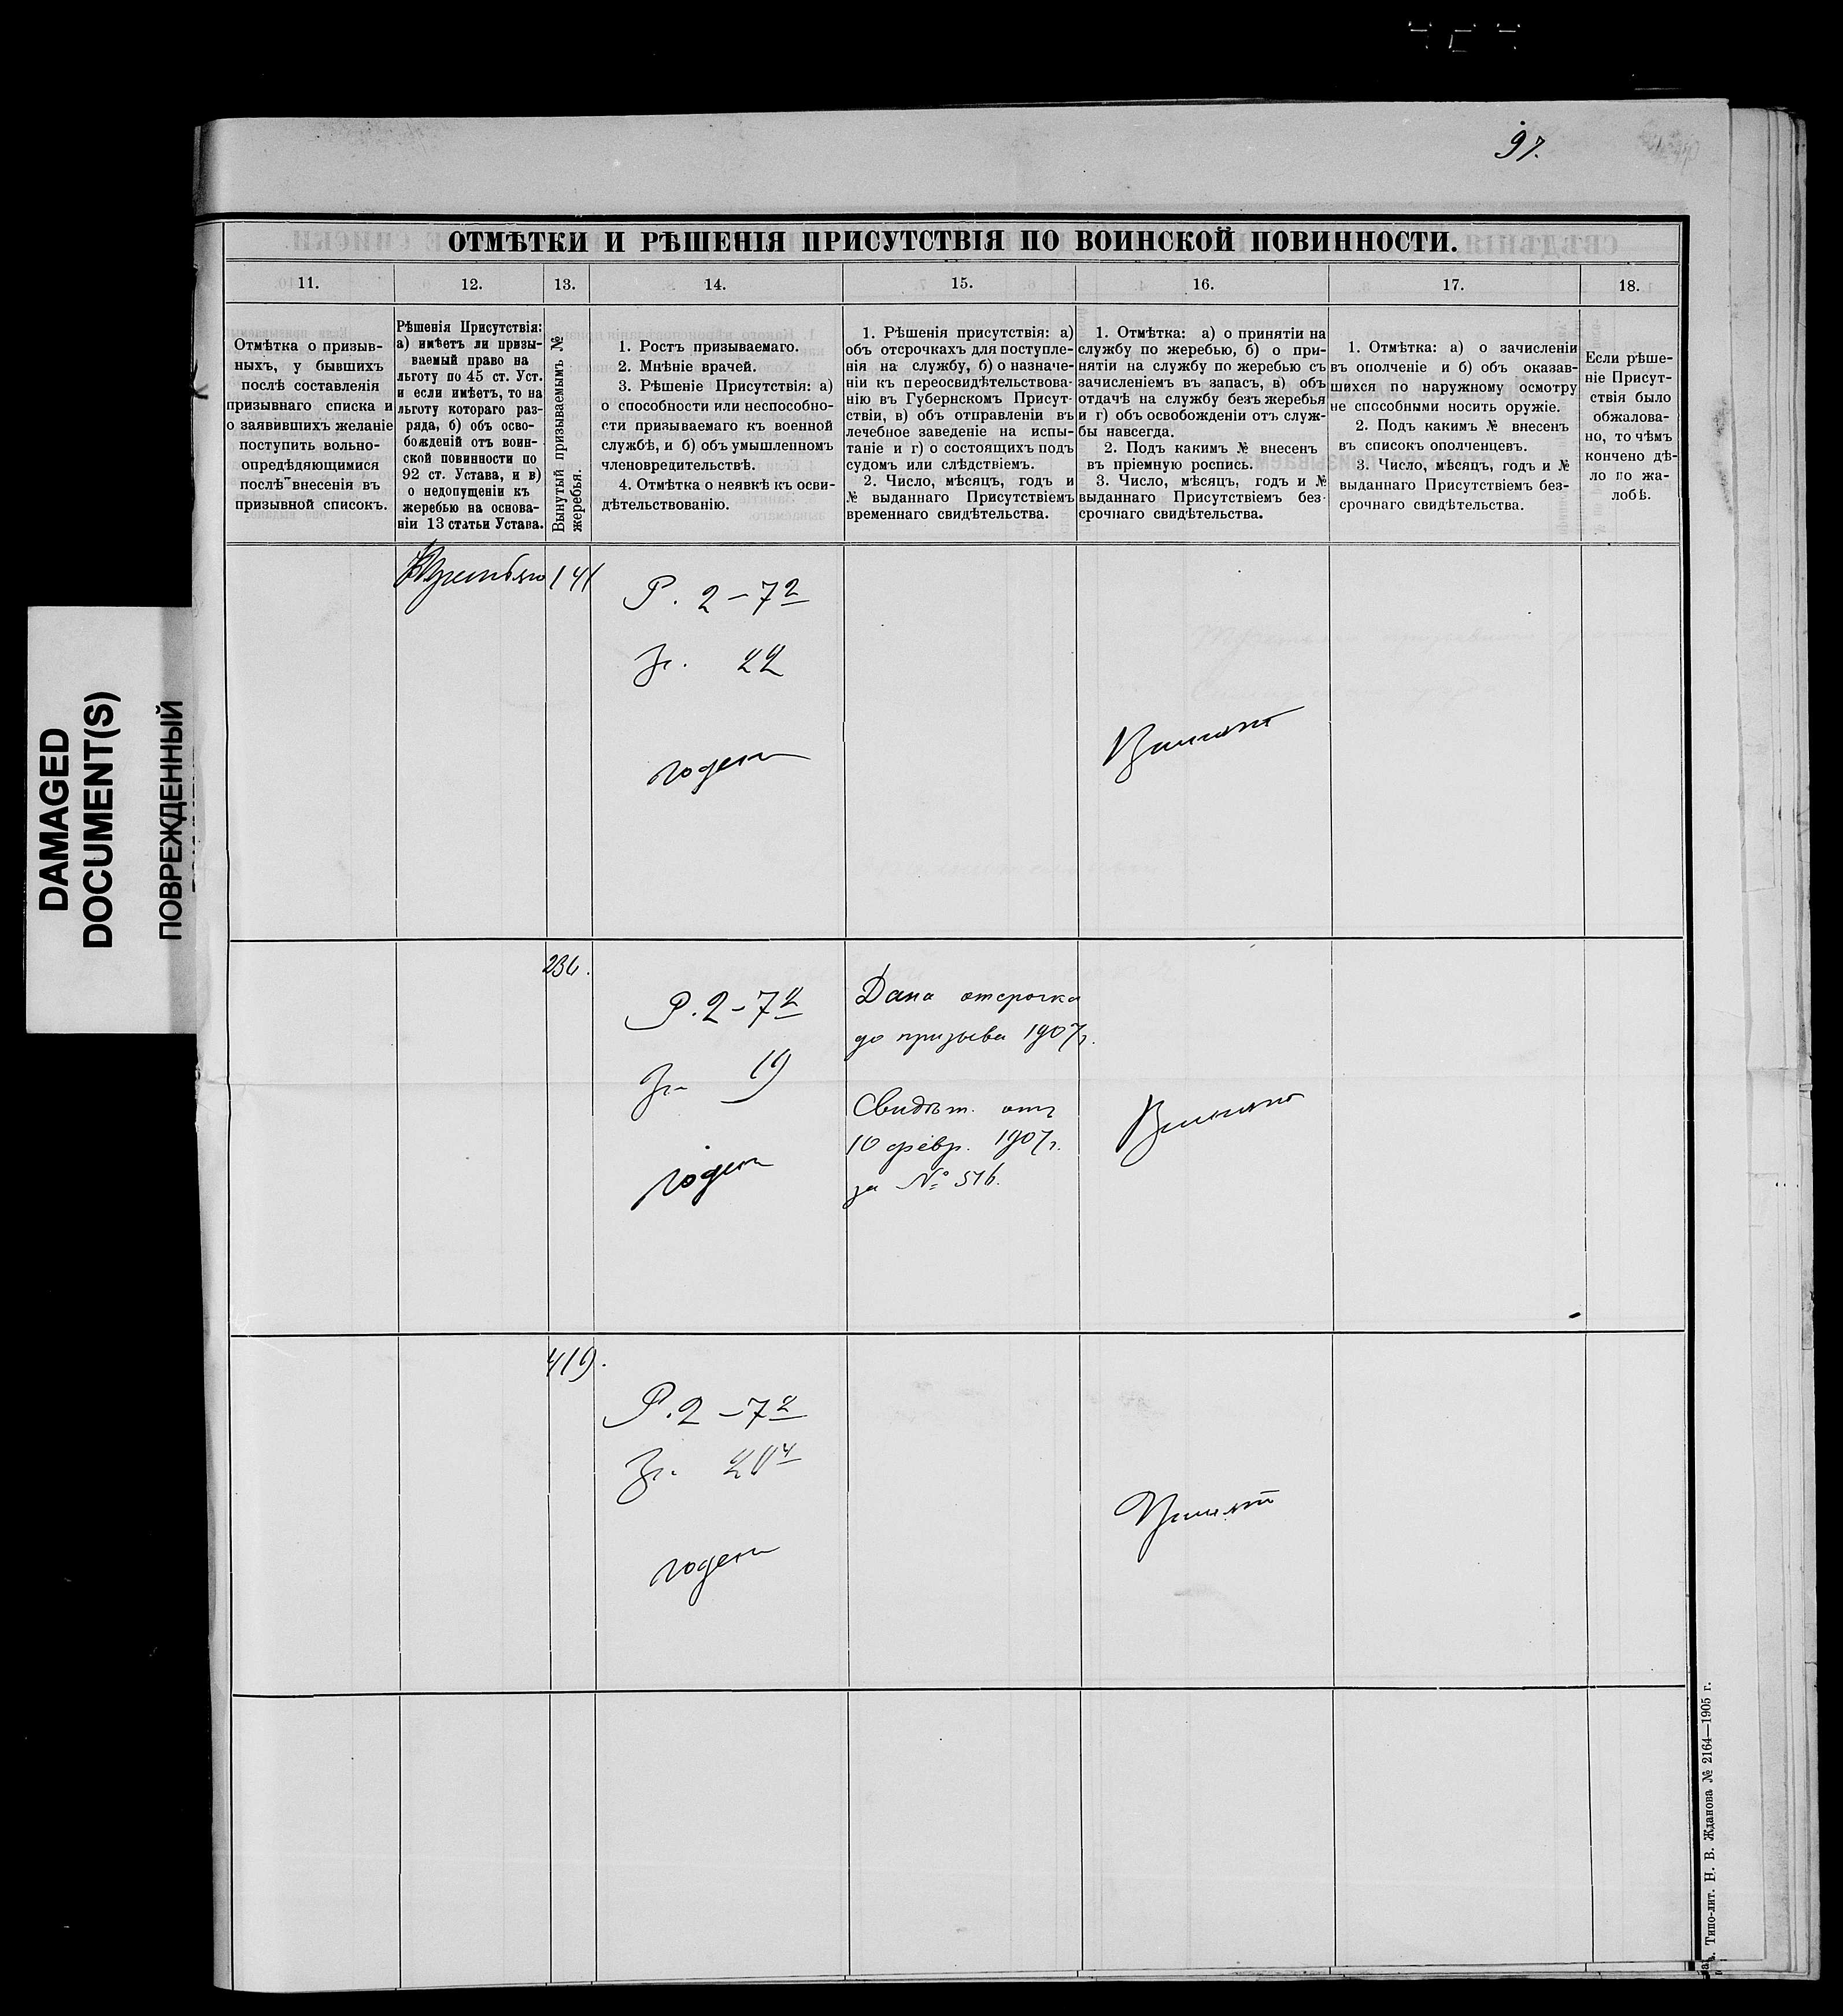 97.
DAMAGED
DOCUMENT(S)
ПОВРЕЖДЕННЫЙ
ОТМѢТКИ И РѢШЕНІЯ ПРИСУТСТВІЯ ПО ВОИНСКОЙ ПОВИННОСТИ.
11.
12.
13.
14.
15.
16.
17.
18.
Отмѣтка о призыв-
ныхъ, у бывшихъ
послѣ составленія
призывнаго списка и
о заявившихъ желаніе
поступить вольно-
опредѣляющимися
послѣ внесенія въ
призывной списокъ.
Рѣшенія Присутствія:
а) имѣетъ ли призы-
ваемый право на
льготу по 45 ст. Уст.
и если имѣетъ, то на
льготу котораго раз-
ряда, б) объ осво-
божденій отъ воин-
ской повинности по
92 ст. Устава, и в)
о недопущеніи къ
жеребью на основа-
ніи 13 статьи Устава.
Вынутый призываемымъ №
жеребья.
1. Ростъ призываемаго.
2. Мнѣніе врачей.
3. Рѣшеніе Присутствія: а)
о способности или неспособно-
сти призываемаго къ военной
службѣ, и б) объ умышленномъ
членовредительствѣ.
4. Отмѣтка о неявкѣ къ осви-
дѣтельствованію.
1. Рѣшенія присутствія: а)
объ отсрочкахъ для поступле-
нія на службу, б) о назначе-
ніи къ переосвидѣтельствова-
нію въ Губернскомъ Присут-
ствіи, в) объ отправленіи въ
лечебное заведеніе на испы-
таніе и г) о состоящихъ подъ
судомъ или слѣдствіемъ.
2. Число, мѣсяцъ, годъ и
№ выданнаго Присутствіемъ
временнаго свидѣтельства.
1. Отмѣтка: а) о принятіи на
службу по жеребью, б) о при-
нятіи на службу по жеребью съ
зачисленіемъ въ запасъ, в) объ
отдачѣ на службу безъ жеребья
и г) объ освобожденіи отъ служ-
бы навсегда.
2. Подъ какимъ № внесенъ
въ пріемную роспись.
3. Число, мѣсяцъ, годъ и №
выданнаго Присутствіемъ без-
срочнаго свидѣтельства.
1. Отмѣтка: а) о зачисленіи
въ ополченіе и б) объ оказав-
шихся по наружному осмотру
не способными носить оружіе.
2. Подъ какимъ № внесенъ
въ списокъ ополченцевъ.
3. Число, мѣсяцъ, годъ и №
выданнаго Присутствіемъ без-
срочнаго свидѣтельства.
Если рѣше-
ніе Присут-
ствія было
обжалова-
но, то чѣмъ
кончено дѣ-
ло по жа-
лобѣ.
141
Р. 2–7 2
Гр. 22
годенъ
Принятъ
236.
Р. 2–7 2
Гр. 19
годенъ
Дана отсрочка
до призыва 1907 г.
Свидѣт. отъ
10 февр. 1907 г.
за № 516.
Принятъ
419.
Р. 2–7 2
Гр.
годенъ
Принятъ
Типо-лит. Н. В. Жданова № 2164—1905 г.